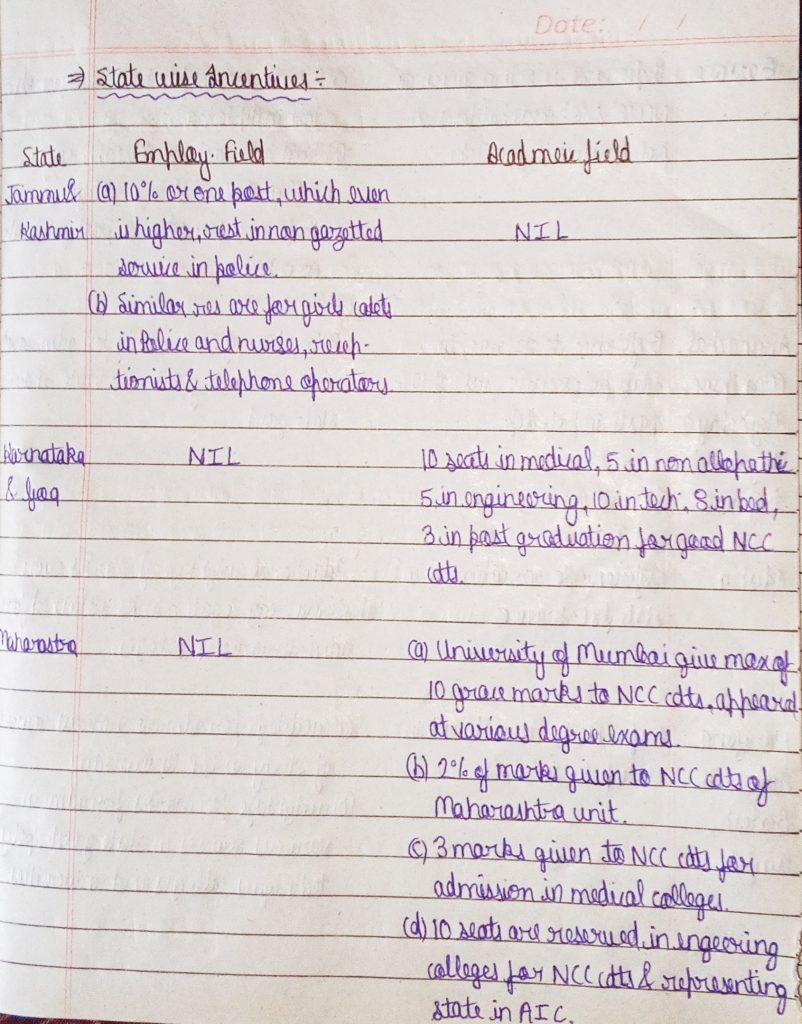 Date: / /
⇒ State wise Incentives ÷
State Employ. Field Acadmeic field
Jammu & (a) 10% or one post, which even
Kashmir is higher, rest in non gazetted NIL
service in police.
(b) Similar res are for girls cadets
in Police and nurses, recep-
tionists & telephone operators.
Karnataka NIL 10 seats in medical, 5 in non allopathic
& goa 5 in engineering, 10 in tech. 8 in bed,
3 in post graduation for good NCC
cdts.
Maharastra NIL (a) University of Mumbai give max of
10 grace marks to NCC cdts, appeared
at various degree exams.
(b) 2% of marks given to NCC cdts of
Maharashtra unit.
(c) 3 marks given to NCC cdts for
admission in medical colleges.
(d) 10 seats are reserved in engeering
colleges for NCC cdts & representing
state in AIC.